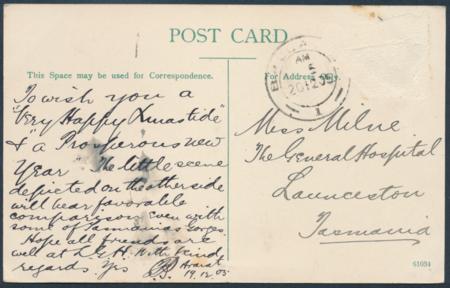 POST CARD
This Space may be used for Correspondence.
For Address Only.
To wish you a
"Very Happy Xmastide"
& "a Prosperous new
Year" The little scene
depicted on the other side
will bear favorable
comparison even with
some of Tasmanias gorges.
Hope all friends are
well at L.G.H. With kind
regards. Yrs
Ararat
19.12.05
AM
2
20.12.05
1
Miss Milne
The General Hospital
Launceston
Tasmania
61034